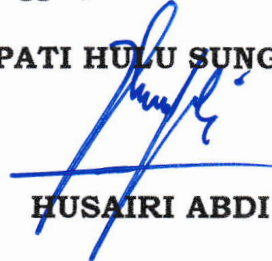 PATI HULU SUNG
HUSAIRI ABDI